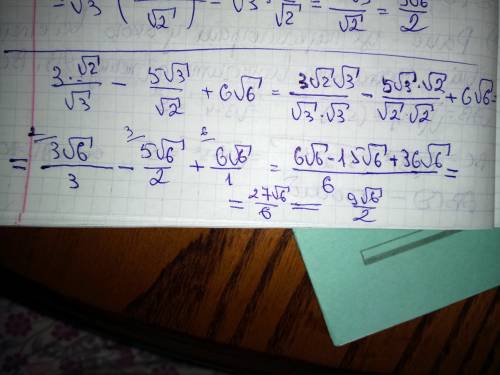 3·√2/√3 − 5√3/√2 + 6√6 = 3√2√3/√3·√3 − 5√3·√2/√2·√2 + 6√6 =
= 3√6/3 − 5√6/2 + 6√6/1 = 6√6−15√6+36√6/6 =
= 27√6/6 = 9√6/2